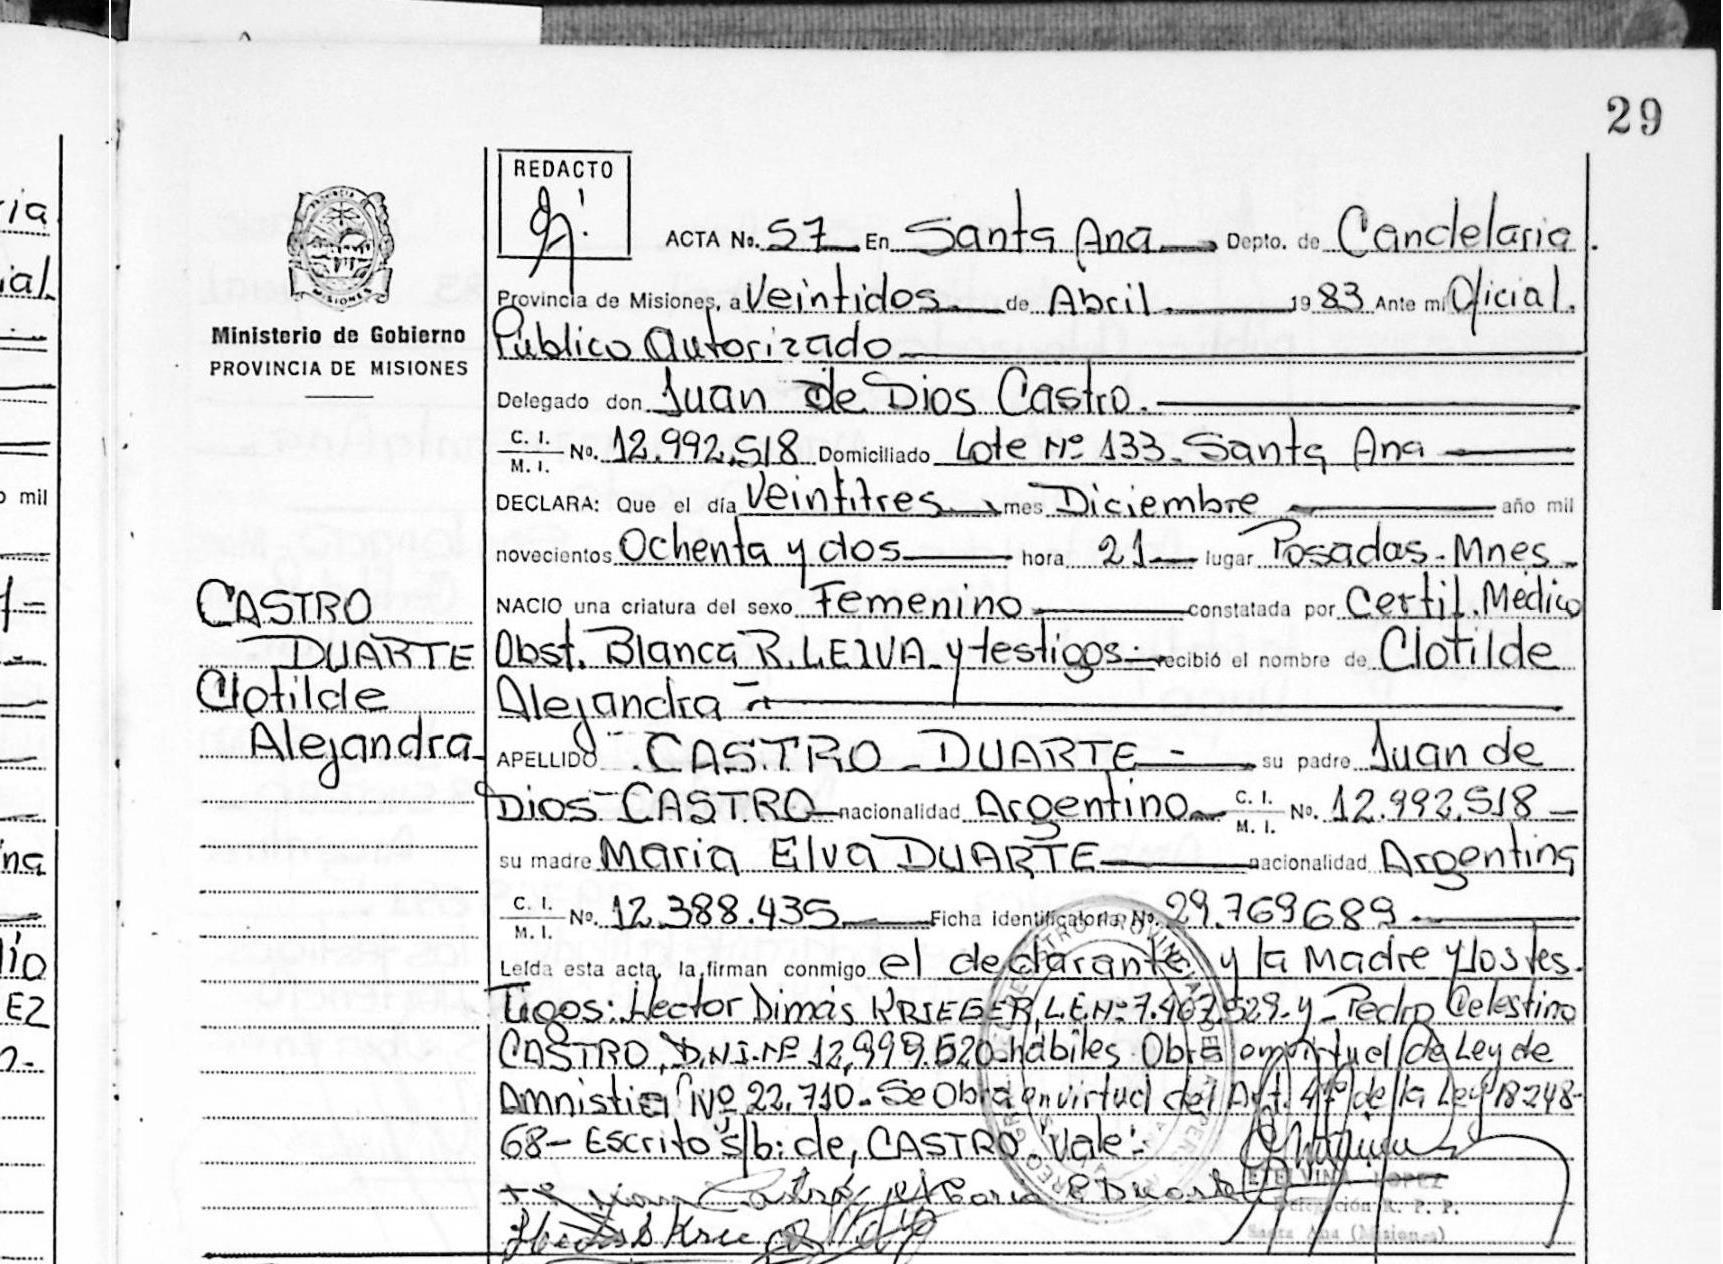 29
REDACTO
ACTA No. 57 En Santa Ana Depto. de Candelaria.
Provincia de Misiones, a Veintidos de Abril 1983 Ante mi Oficial.
Público Autorizado
Ministerio de Gobierno
PROVINCIA DE MISIONES
Delegado don Juan de Dios Castro.
C. I. M. I. No. 12.992.518 Domiciliado Lote Nº 133. Santa Ana
DECLARA: Que el día Veintitres mes Diciembre año mil
novecientos Ochenta y dos hora 21 lugar Posadas - Mnes
NACIO una criatura del sexo Femenino constatada por Certif. Médico
Obst. Blanca R. LEIVA y testigos recibió el nombre de Clotilde
Alejandra
APELLIDO CASTRO DUARTE su padre Juan de
Dios CASTRO nacionalidad Argentino C. I. M. I. No. 12.992.518
su madre Maria Elva DUARTE nacionalidad Argentina
C. I. M. I. No. 12.388.435 Ficha identificatoria No. 29.769689
Leída esta acta, la firman conmigo el declarante y la Madre y los tes.
Tigos: Hector Dimas KRIEGER, L.E. Nº 7.467.529 y Pedro Celestino
CASTRO, D.N.I. Nº 12,999.520 hábiles. Obra en virtud de Ley de
Amnistia Nº 22.710 - Se Obra en virtud del Art. 4º de la Ley 18248-
68 - Escrito s/b: de, CASTRO. Vale:
CASTRO
DUARTE
Clotilde
Alejandra
ETELVINA LOPEZ
Delegación R. P. P.
Santa Ana (Misiones)
mil